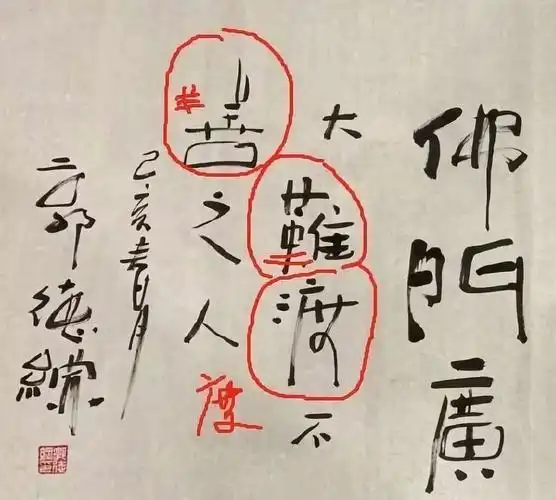 佛門廣
大難渡不
善之人
度
己亥春月
郭德綱